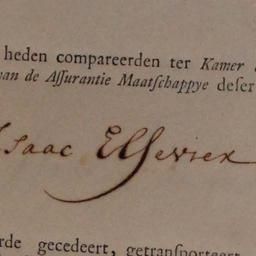 heden compareerden ter Kamer
van de Aſſurantie Maatſchappye deſer
Isaac Elsevier
rde gecedeert, getranſporteert